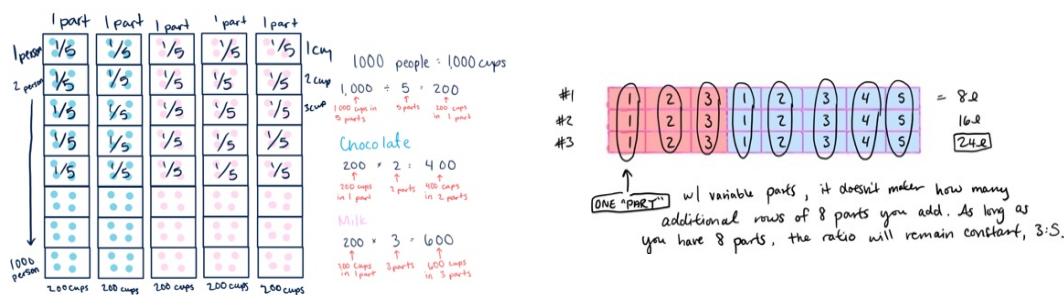 1 part 1 part 1 part 1 part 1 part
1 person 1/5 1/5 1/5 1/5 1/5 1 cup
2 person 1/5 1/5 1/5 1/5 1/5 2 cup
1/5 1/5 1/5 1/5 1/5 3 cup
1/5 1/5 1/5 1/5 1/5
1/5 1/5 1/5 1/5 1/5
1000 person
200 cups 200 cups 200 cups 200 cups 200 cups
1000 people = 1,000 cups
1,000 ÷ 5 = 200
1000 cups in 5 parts
5 parts
200 cups in 1 part
Chocolate
200 × 2 = 400
200 cups in 1 part
2 parts
400 cups in 2 parts
Milk
200 × 3 = 600
200 cups in 1 part
3 parts
600 cups in 3 parts
#1 1 2 3 1 2 3 4 5 = 8l
#2 1 2 3 1 2 3 4 5 16l
#3 1 2 3 1 2 3 4 5 24l
ONE "PART"
w/ variable parts, it doesn't matter how many
additional rows of 8 parts you add. As long as
you have 8 parts, the ratio will remain constant, 3:5.